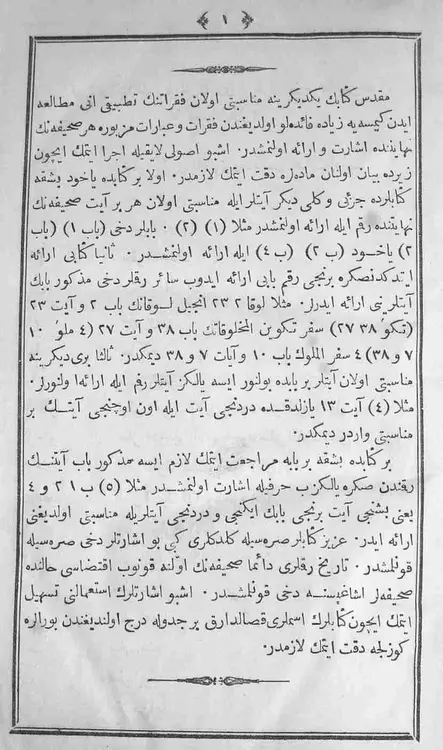 ١
مقدس كتابك يكديكرينه مناسبتى اولان فقراتنك تطبيقى انى مطالعه
ايدن كيمسه‌يه زياده فائده‌لو اولديغندن فقرات و عبارات مزبوره هر صحيفه‌نك
نهايتنده اشارت و ارائه اولنمشدر. اشبو اصولى لايقيله اجرا ايتمك ايچون
زيرده بيان اولنان ماده‌لره دقت ايتمك لازمدر. اولا بر كتابده ياخود بشقه
كتابلرده جزئى و كلى ديكر آيتلر ايله مناسبتى اولان هر بر آيت صحيفه‌نك
نهايتنده رقم ايله ارائه اولنمشدر مثلا (١) (٢) ٠ بابلر دخى (باب ١) (باب
٢) ياخود (ب ٢) (ب ٤) ايله ارائه اولنمشدر. ثانيا كتابى ارائه
ايتدكدنصكره برنجى رقم بابى ارائه ايدوب سائر رقملر دخى مذكور بابك
آيتلرينى ارائه ايدرلر. مثلا لوقا ٢ ٢٣ انجيل لوقانك باب ٢ و آيت ٢٣
(تكو ٣٨ ٢٧) سفر تكوين المخلوقاتك باب ٣٨ و آيت ٢٧ (٤ ملو ١٠
٧ و ٣٨) ٤ سفر الملوك باب ١٠ و آيات ٧ و ٣٨ ديمكدر. ثالثا برى ديكرينه
مناسبتى اولان آيتلر بر بابده بولنور ايسه يالكز آيتلر رقم ايله ارائه اولنورلر.
مثلا (٤) آيت ١٣ يازلدقده دردنجى آيت ايله اون اوچنجى آيتك بر
مناسبتى واردر ديمكدر.
بر كتابده بشقه بر بابه مراجعت ايتمك لازم ايسه مذكور باب آيتنك
رقندن صكره يالكز ب حرفيله اشارت اولنمشدر مثلا (٥) ب ١ ٢ و ٤
يعنى بشنجى آيت برنجى بابك ايكنجى و دردنجى آيتلريله مناسبتى اولديغنى
ارائه ايدر. عزيز كتابلر صره‌سيله كلدكلرى كبى بو اشارتلر دخى صره‌سيله
قونلمشدر. تاريخ رقملرى دائما صحيفه‌نك اولنه قونوب اقتضاسى حالنده
صحيفه‌لر اشاغيسنه دخى قونلمشدر. اشبو اشارتلرك استعمالنى تسهيل
ايتمك ايچون كتابلرك اسملرى قصالدارق بر جدوله درج اولنديغندن بورازه
كوزلجه دقت ايتمك لازمدر.